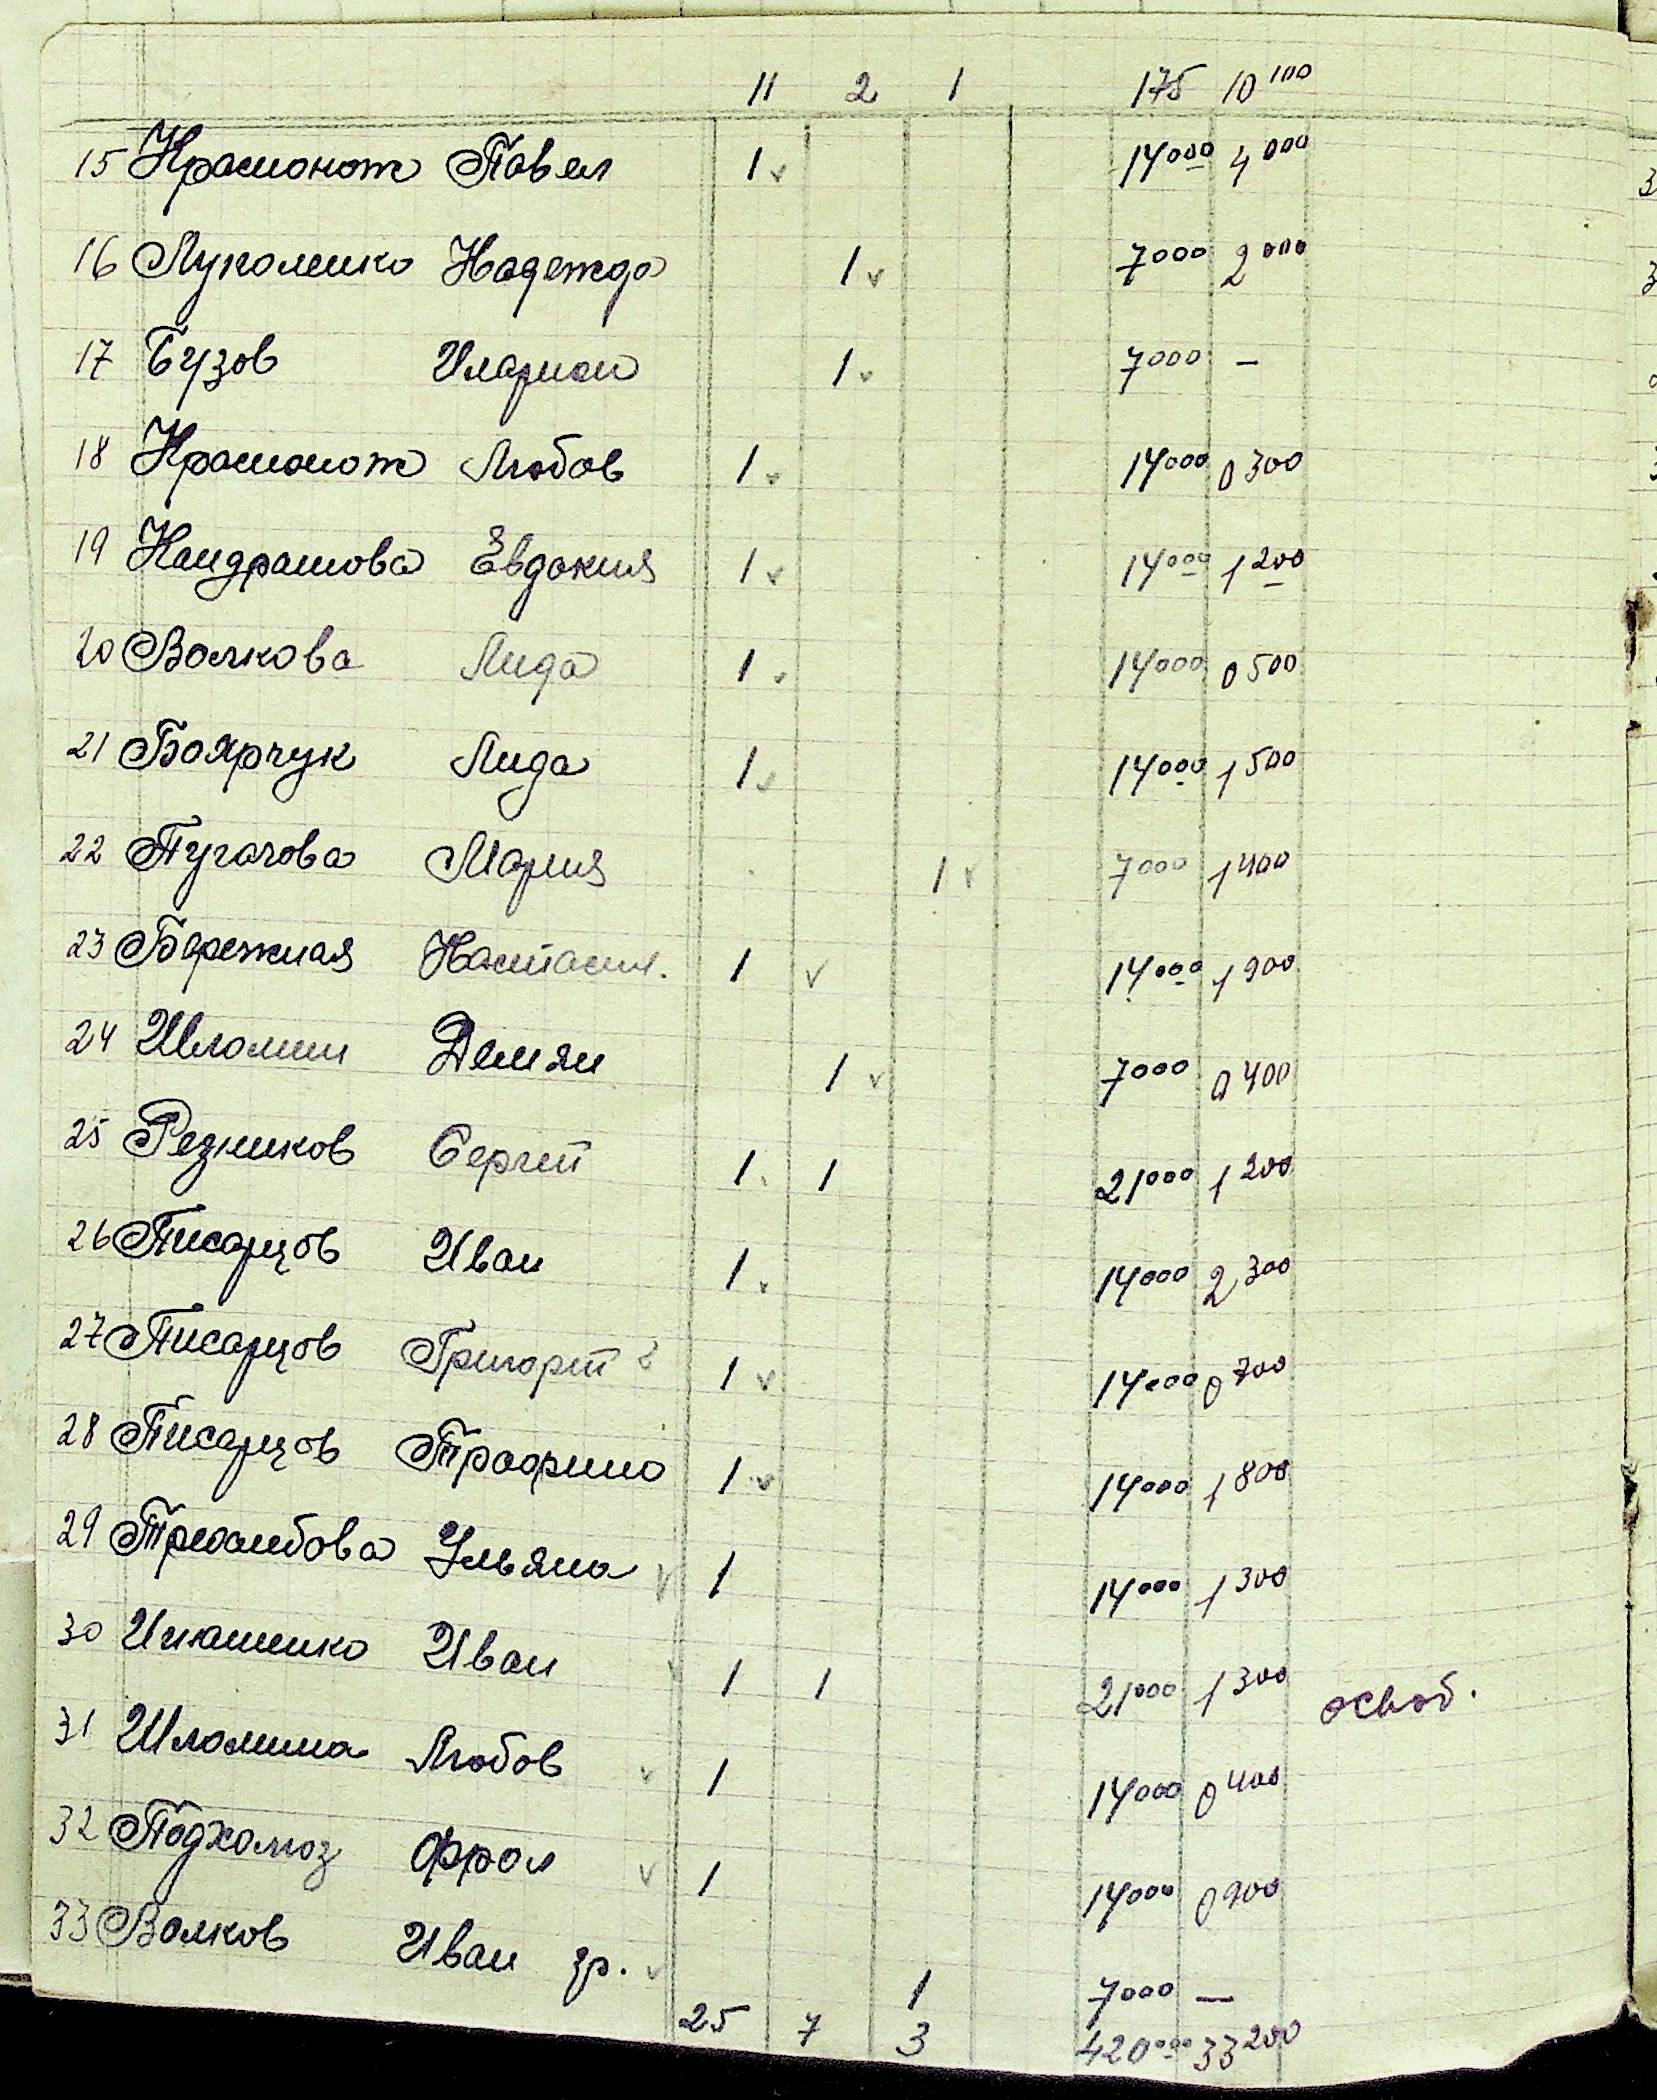 11 2 1 175 10 100
15 Красионот Павел 1 14000 4 000
16 Луколенко Надежда 1 7000 2 000
17 Бузов Иларион 1 7000 —
18 Красионот Любов 1 14000 0 300
19 Кандрашова Евдокия 1 14000 1 200
20 Волкова Лида 1 14000 0 500
21 Боярчук Лида 1 14000 1 500
22 Пугачова Мария 1 7000 1 400
23 Бережная Настасия. 1 14000 1 900
24 Демян 1 7000 0 400
25 Резников Сергей 1 1 21000 1 200
26 Писарцов Иван 1 14000 2 300
27 Писарцов Григорий 1 14000 0 700
28 Писарцов Трофимо 1 14000 1 800
29 Ульяна 1 14000 1 300
30 Игнашенко Иван 1 1 21000 1 300 освоб.
31 Шломина Любов 1 14000 0 400
32 Подхалюз Фрол 1 14000 0 900
33 Волков Иван гр. 1 7000 —
25 7 3 420000 33 200